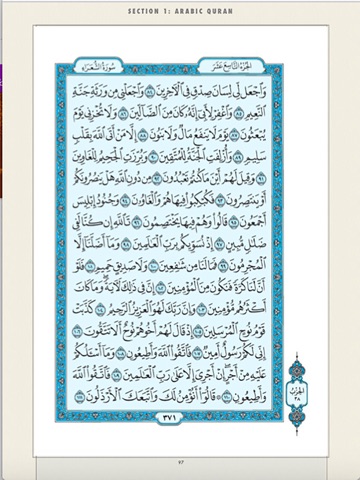 SECTION 1: ARABIC QURAN
سُورَةُ الشُّعَرَاء
الجُزْءُ التَّاسِعَ عَشَرَ
وَٱجْعَل لِّي لِسَانَ صِدْقٍ فِي ٱلْأَخِرِينَ ٨٤ وَٱجْعَلْنِي مِن وَرَثَةِ جَنَّةِ
ٱلنَّعِيمِ ٨٥ وَٱغْفِرْ لِأَبِي إِنَّهُ كَانَ مِنَ ٱلضَّالِّينَ ٨٦ وَلَا تُخْزِنِي يَوْمَ
يُبْعَثُونَ ٨٧ يَوْمَ لَا يَنفَعُ مَالٌ وَلَا بَنُونَ ٨٨ إِلَّا مَنْ أَتَى ٱللَّهَ بِقَلْبٍ
سَلِيمٍ ٨٩ وَأُزْلِفَتِ ٱلْجَنَّةُ لِلْمُتَّقِينَ ٩٠ وَبُرِّزَتِ ٱلْجَحِيمُ لِلْغَاوِينَ
٩١ وَقِيلَ لَهُمْ أَيْنَ مَا كُنتُمْ تَعْبُدُونَ ٩٢ مِن دُونِ ٱللَّهِ هَلْ يَنصُرُونَكُمْ
أَوْ يَنتَصِرُونَ ٩٣ فَكُبْكِبُوا۟ فِيهَا هُمْ وَٱلْغَاوُۥنَ ٩٤ وَجُنُودُ إِبْلِيسَ
أَجْمَعُونَ ٩٥ قَالُوا۟ وَهُمْ فِيهَا يَخْتَصِمُونَ ٩٦ تَٱللَّهِ إِن كُنَّا لَفِي
ضَلَٰلٍ مُّبِينٍ ٩٧ إِذْ نُسَوِّيكُم بِرَبِّ ٱلْعَٰلَمِينَ ٩٨ وَمَآ أَضَلَّنَآ إِلَّا
ٱلْمُجْرِمُونَ ٩٩ فَمَا لَنَا مِن شَٰفِعِينَ ١٠٠ وَلَا صَدِيقٍ حَمِيمٍ ١٠١ فَلَوْ
أَنَّ لَنَا كَرَّةً فَنَكُونَ مِنَ ٱلْمُؤْمِنِينَ ١٠٢ إِنَّ فِي ذَٰلِكَ لَأَيَةً وَمَا كَانَ
أَكْثَرُهُم مُّؤْمِنِينَ ١٠٣ وَإِنَّ رَبَّكَ لَهُوَ ٱلْعَزِيزُ ٱلرَّحِيمُ ١٠٤ كَذَّبَتْ
قَوْمُ نُوحٍ ٱلْمُرْسَلِينَ ١٠٥ إِذْ قَالَ لَهُمْ أَخُوهُمْ نُوحٌ أَلَا تَتَّقُونَ ١٠٦
إِنِّي لَكُمْ رَسُولٌ أَمِينٌ ١٠٧ فَٱتَّقُوا۟ ٱللَّهَ وَأَطِيعُونِ ١٠٨ وَمَآ أَسْـَٔلُكُمْ
عَلَيْهِ مِنْ أَجْرٍ إِنْ أَجْرِيَ إِلَّا عَلَىٰ رَبِّ ٱلْعَٰلَمِينَ ١٠٩ فَٱتَّقُوا۟ ٱللَّهَ
وَأَطِيعُونِ ١١٠ ۞ قَالُوٓا۟ أَنُؤْمِنُ لَكَ وَٱتَّبَعَكَ ٱلْأَرْذَلُونَ ١١١
٣٧١
الحِزْبُ
٣٨
97